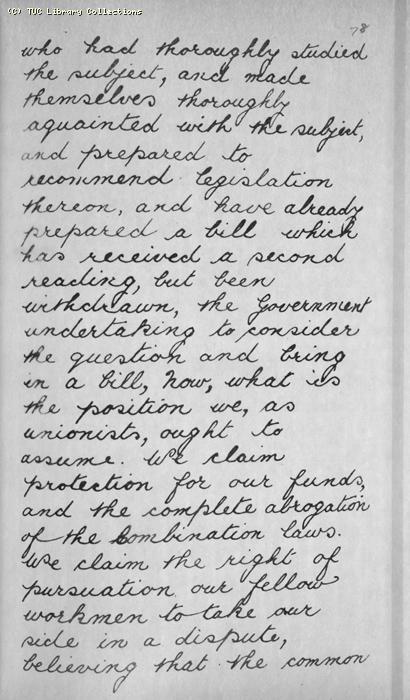 (C) TUC Library Collections
78
who had thoroughly studied
the subject, and made
themselves thoroughly
aquainted with the subject,
and prepared to
recommend legislation
thereon, and have already
prepared a bill which
has received a second
reading, but been
withdrawn, the Government
undertaking to consider
the question and bring
in a bill, Now, what is
the position we, as
unionists, ought to
assume. We claim
protection for our funds,
and the complete abrogation
of the Combination laws.
We claim the right of
pursuation our fellow
workmen to take our
side in a dispute,
believing that the common